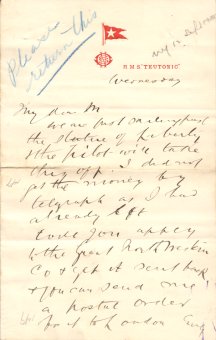 Please
return this
R.M.S. "TEUTONIC"
Wednesday
My dear M
we are just sailing past
the statue of Liberty
& the pilot will take
this off. I did not
get the money by
telegraph as I had
already left
Could you apply
to the Great Northwestern
Co & get it sent back
& you can send me
a postal order
for it to London Eng